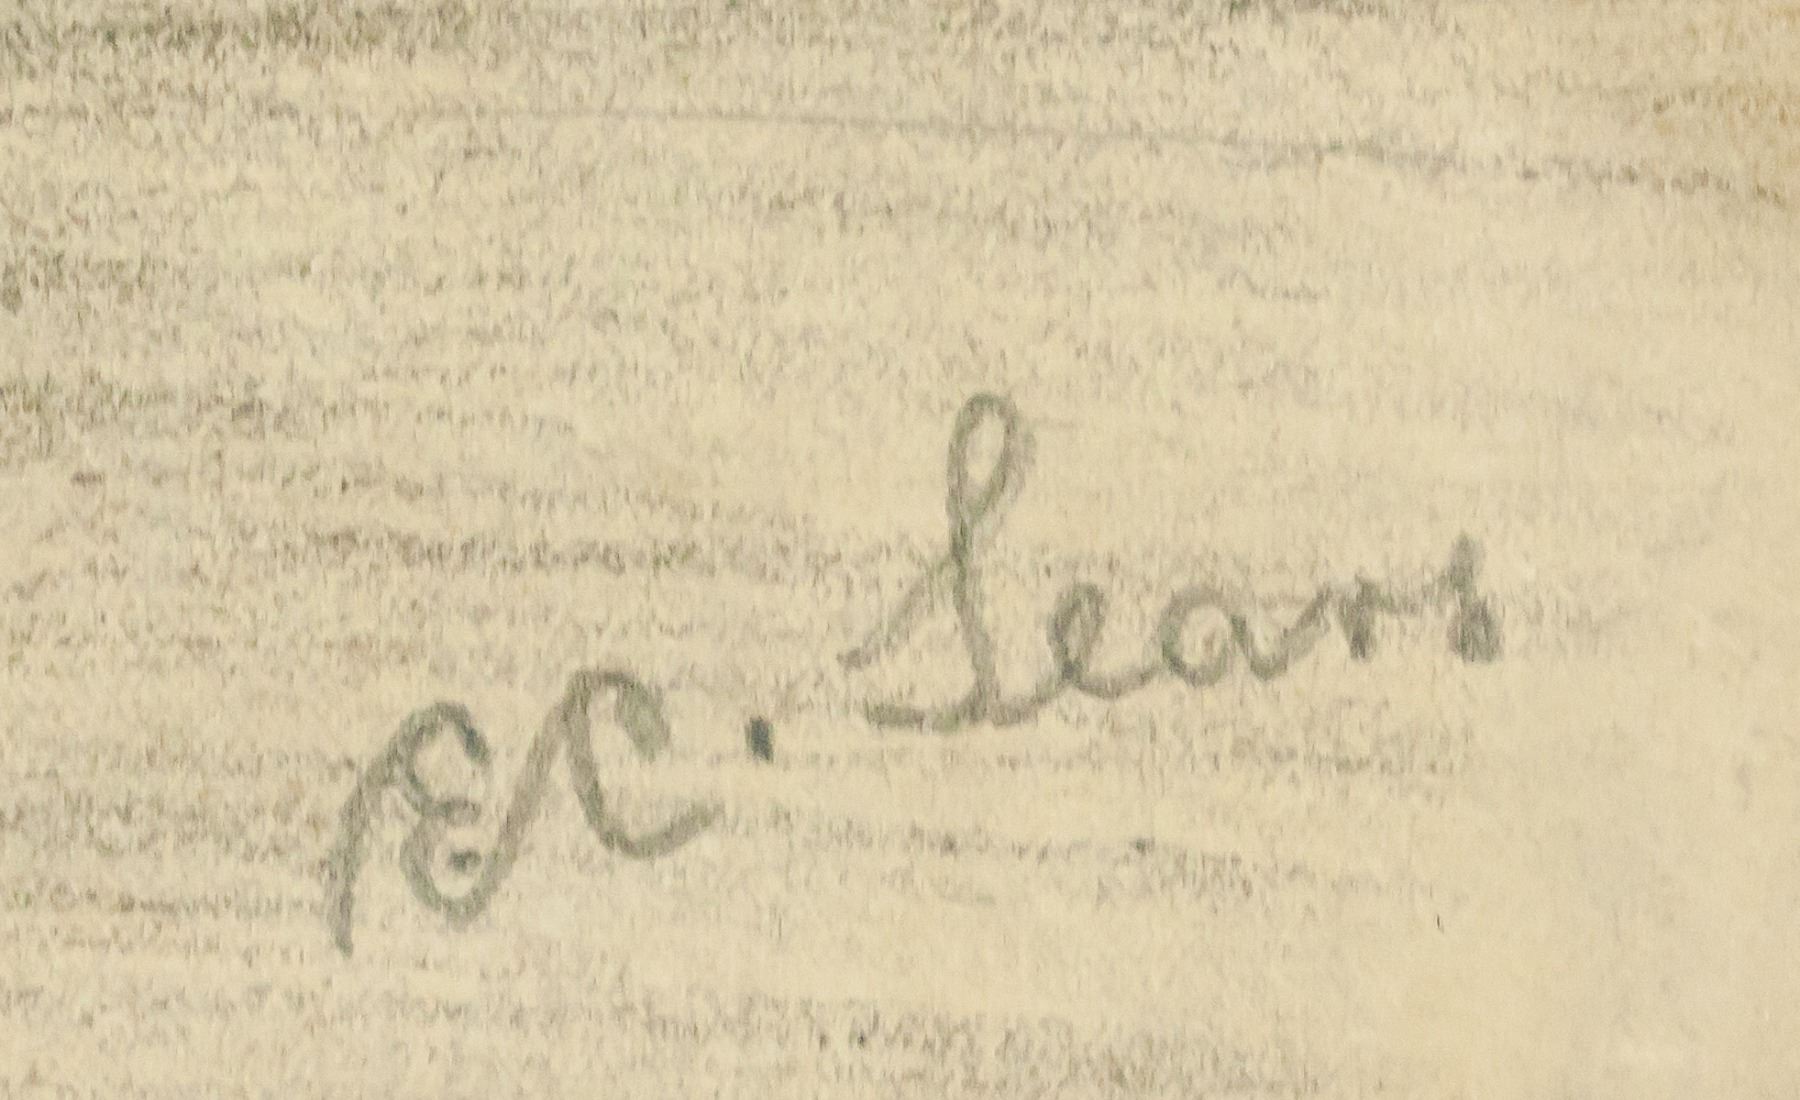 EC. Sears